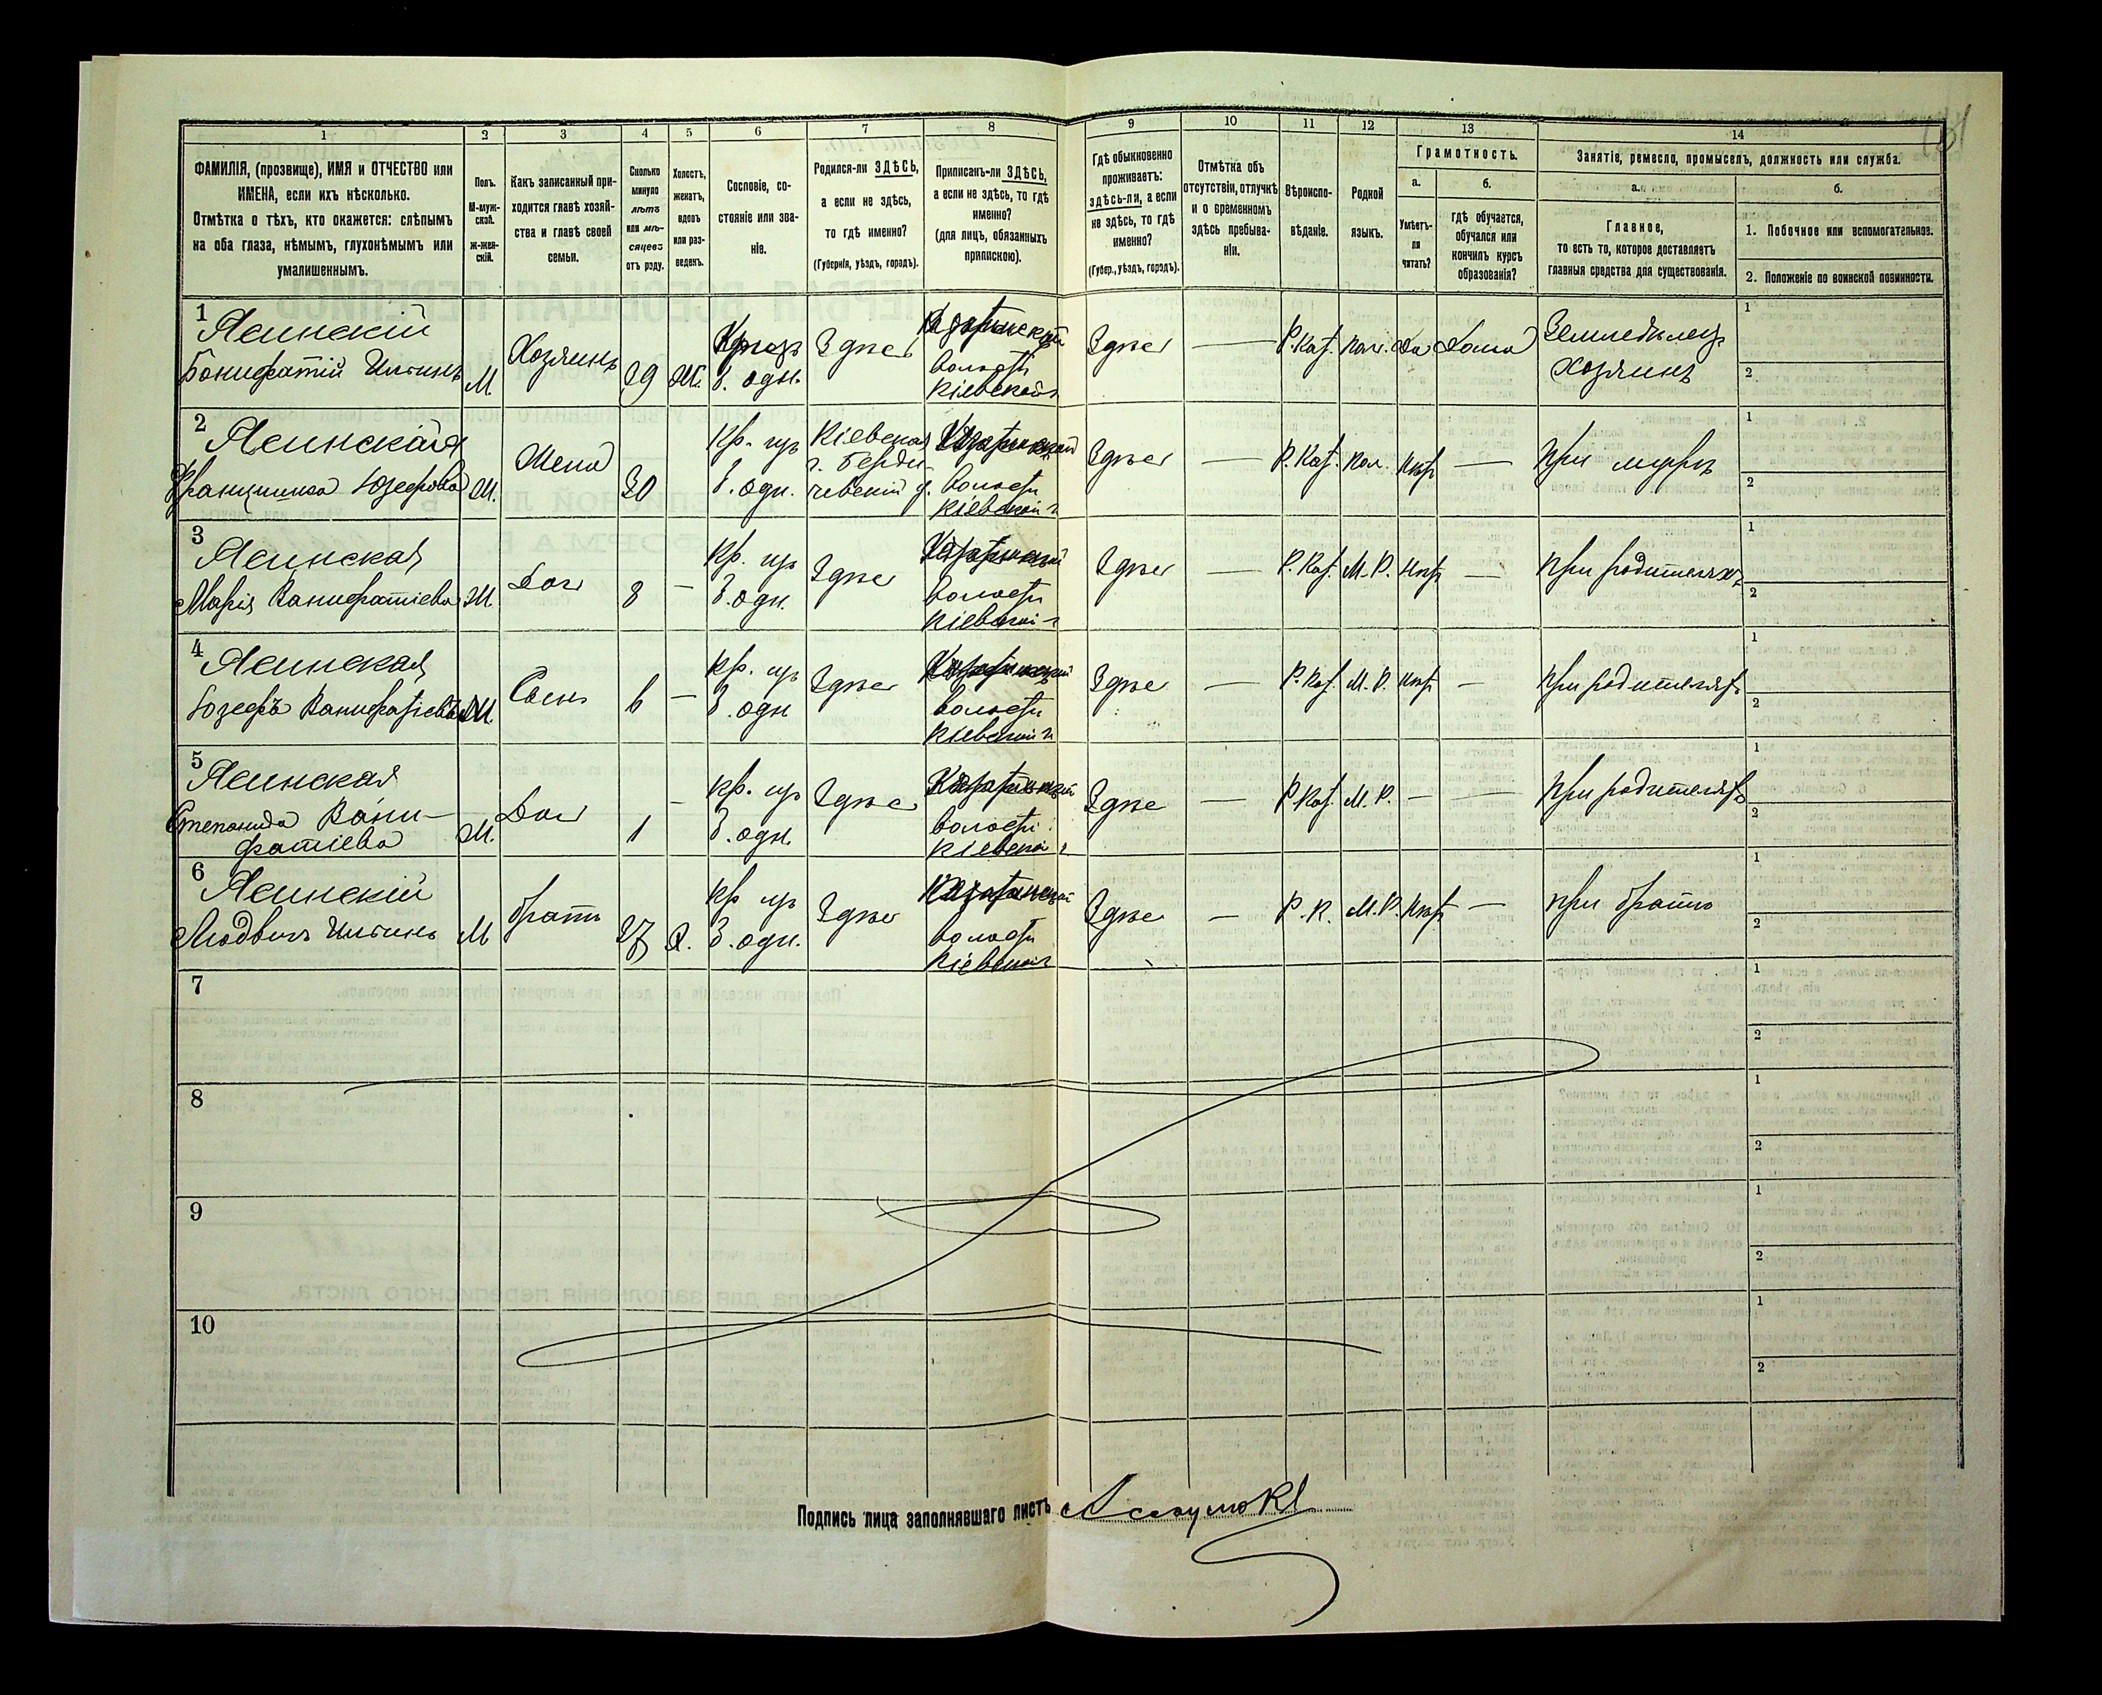 1 2 3 4 5 6 7 8 9 10 11 12 13 14
ФАМИЛІЯ, (прозвище), ИМЯ и ОТЧЕСТВО или
ИМЕНА, если ихъ нѣсколько.
Отмѣтка о тѣхъ, кто окажется: слѣпымъ
на оба глаза, нѣмымъ, глухонѣмымъ или
умалишеннымъ.
Полъ.
М-муж-
ской.
ж-жен-
скій.
Какъ записанный при-
ходится главѣ хозяй-
ства и главѣ своей
семьи.
Сколько
минуло
лѣтъ
или мѣ-
сяцевъ
отъ роду.
Холостъ,
женатъ,
вдовъ
или раз-
веденъ.
Сословіе, со-
стояніе или зва-
ніе.
Родился-ли ЗДѢСЬ,
а если не здѣсь,
то гдѣ именно?
(Губернія, уѣздъ, городъ).
Приписанъ-ли ЗДѢСЬ,
а если не здѣсь, то гдѣ
именно?
(для лицъ, обязанныхъ
припискою).
Гдѣ обыкновенно
проживаетъ:
здѣсь-ли, а если
не здѣсь, то гдѣ
именно?
(Губер., уѣздъ, городъ).
Отмѣтка объ
отсутствіи, отлучкѣ
и о временномъ
здѣсь пребыва-
ніи.
Вѣроиспо-
вѣданіе.
Родной
языкъ.
Грамотность.
а.
Умѣетъ-
ли
читать?
б.
гдѣ обучается,
обучался или
кончилъ курсъ
образованія?
Занятіе, ремесло, промыселъ, должность или служба.
а.
Главное,
то есть то, которое доставляетъ
главныя средства для существованія.
б.
1. Побочное или вспомогательное.
2. Положеніе по воинской повинности.
1
Ясинскій
Бонифатій Ильинъ
М.
Хозяинъ
29
Ж.
З. одн.
Здѣсь
волости
Кіевской г.
Здѣсь
Р. Кат.
Пол.
Да
Дома
Земледѣлец
хозяинъ
1
2
2
Ясинская
Францишка Юзефова
Ж.
Жена
30
Кр. изъ
З. одн.
Кіевская
г. Берди-
чевскій у.
волости
Кіевской г.
Здѣсь
Р. Кат.
Пол.
—
При мужѣ
1
2
3
Ясинская
Марія Ванифатіева
Ж.
Доч
8
—
Кр. изъ
З. одн.
Здѣс
волости
Кіевской г.
Здѣсь
Р. Кат.
М. Р.
—
При родителях
1
2
4
Ясинская
Юзефъ Ванифатіевъ
Сынъ
6
—
Кр. изъ
З. одн
Здѣсь
волости
Кіевской г.
Здѣс
Р. Кат.
М. Р.
—
При родителях
1
2
5
Ясинская
Степанида Вани-
фатіева
Ж.
Доч
1
—
Кр. изъ
З. одн.
Здѣсь
волости
Кіевской г.
Здѣс
Р. Кат.
М. Р.
—
—
При родителях
1
2
6
Ясинскій
Людвигъ Ильинъ
М
братъ
27
Х.
Кр изъ
З. одн.
Здѣсь
волости
Кіевской г.
Здѣсь
—
Р. К.
М. Р.
—
При братѣ
1
2
7
1
2
8
1
2
9
1
2
10
1
2
Подпись лица заполнявшаго листъ